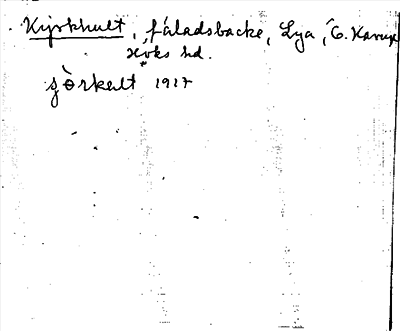 Kyrkhult, fáladsbacke, Lya, Ö. Karup
Höks hd.
jòrkalt 1917